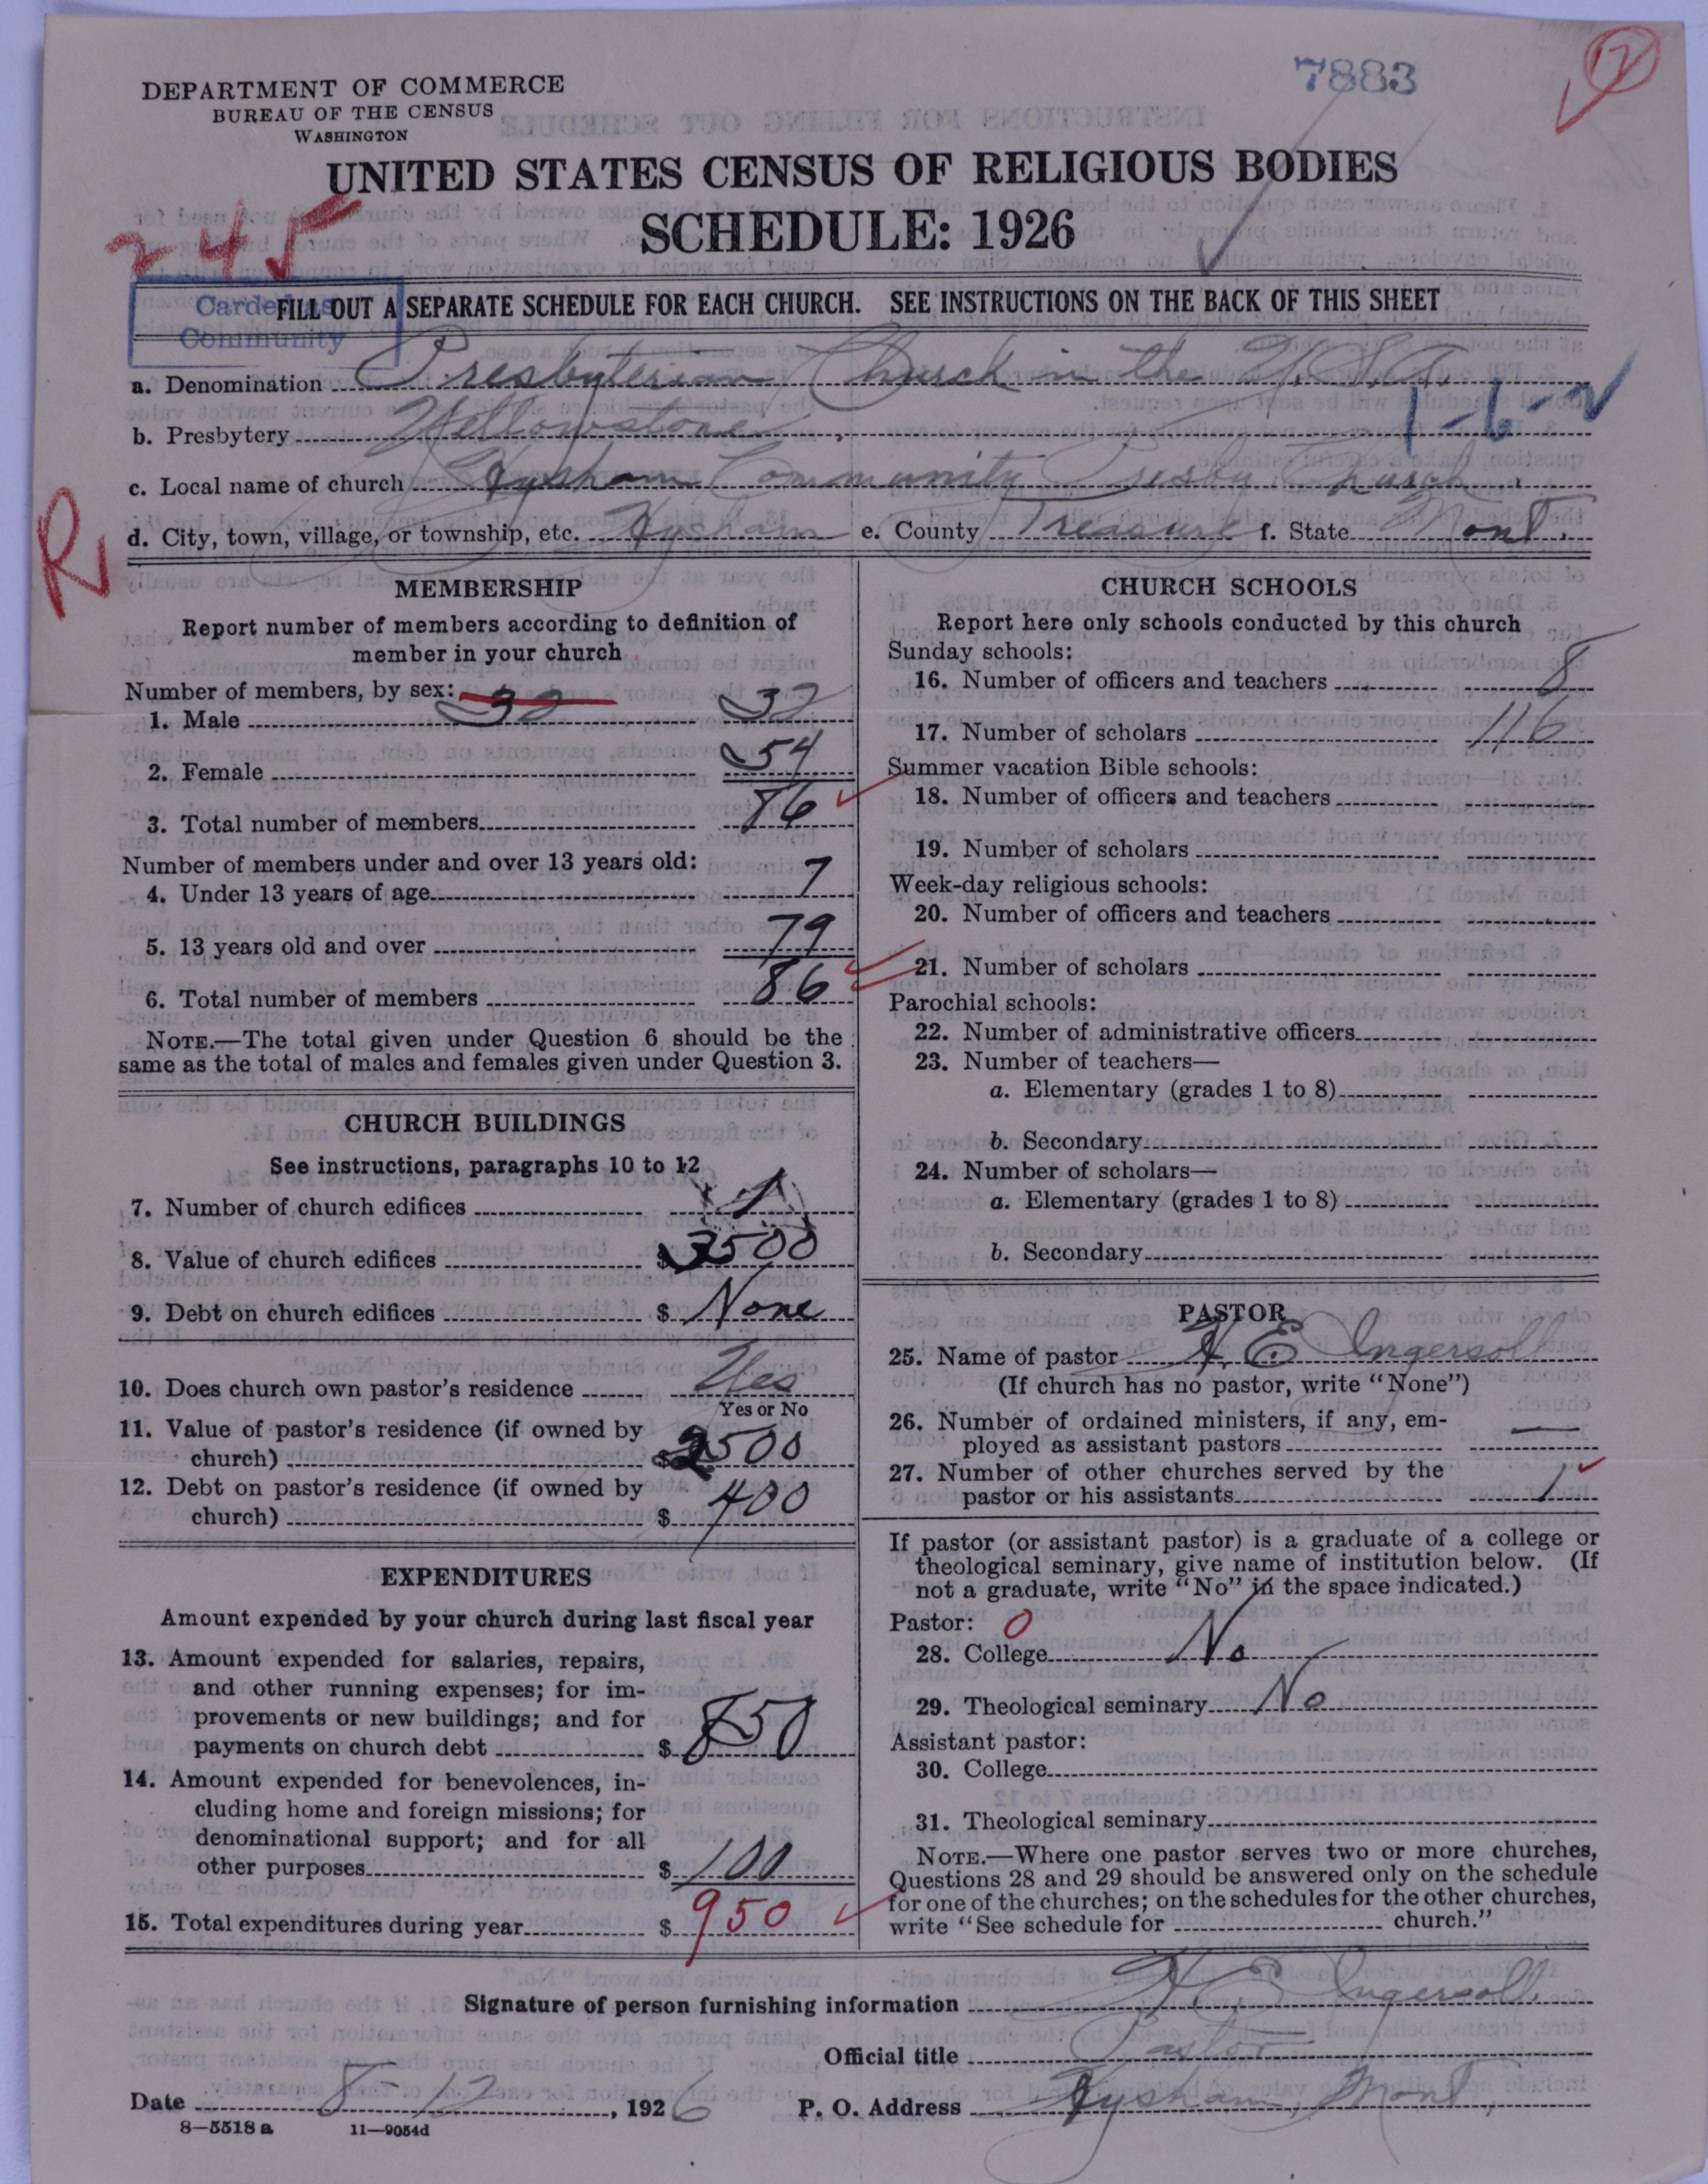 7883
12
DEPARTMENT OF COMMERCE
BUREAU OF THE CENSUS
WASHINGTON
UNITED STATES CENSUS OF RELIGIOUS BODIES
SCHEDULE: 1926
245
Carded as
Community
FILL OUT A SEPARATE SCHEDULE FOR EACH CHURCH. SEE INSTRUCTIONS ON THE BACK OF THIS SHEET
a. Denomination Presbyterian Church in the U.S.A.
1-6-2
b. Presbytery Yellowstone
c. Local name of church Hysham Community Presby. Church.
R
d. City, town, village, or township, etc. Hysham e. County Treasure f. State Mont.
MEMBERSHIP
Report number of members according to definition of
member in your church
Number of members, by sex: 32
1. Male 32
2. Female 54
3. Total number of members 86
Number of members under and over 13 years old:
4. Under 13 years of age 7
5. 13 years old and over 79
6. Total number of members 86
NOTE.—The total given under Question 6 should be the
same as the total of males and females given under Question 3.
CHURCH BUILDINGS
See instructions, paragraphs 10 to 12
7. Number of church edifices 1
8. Value of church edifices $ 3500
9. Debt on church edifices $ None
10. Does church own pastor's residence Yes
Yes or No
11. Value of pastor's residence (if owned by
church) $ 2500
12. Debt on pastor's residence (if owned by
church) $ 400
EXPENDITURES
Amount expended by your church during last fiscal year
13. Amount expended for salaries, repairs,
and other running expenses; for im-
provements or new buildings; and for
payments on church debt $ 850
14. Amount expended for benevolences, in-
cluding home and foreign missions; for
denominational support; and for all
other purposes $ 100
15. Total expenditures during year $ 950
CHURCH SCHOOLS
Report here only schools conducted by this church
Sunday schools:
16. Number of officers and teachers 8
17. Number of scholars 116
Summer vacation Bible schools:
18. Number of officers and teachers
19. Number of scholars
Week-day religious schools:
20. Number of officers and teachers
21. Number of scholars
Parochial schools:
22. Number of administrative officers
23. Number of teachers—
a. Elementary (grades 1 to 8)
b. Secondary
24. Number of scholars—
a. Elementary (grades 1 to 8)
b. Secondary
PASTOR
25. Name of pastor H. E. Ingersoll
(If church has no pastor, write "None")
26. Number of ordained ministers, if any, em-
ployed as assistant pastors —
27. Number of other churches served by the
pastor or his assistants 1
If pastor (or assistant pastor) is a graduate of a college or
theological seminary, give name of institution below. (If
not a graduate, write "No" in the space indicated.)
Pastor: 0
28. College No
29. Theological seminary No
Assistant pastor:
30. College
31. Theological seminary
NOTE.—Where one pastor serves two or more churches,
Questions 28 and 29 should be answered only on the schedule
for one of the churches; on the schedules for the other churches,
write "See schedule for church."
Signature of person furnishing information H E Ingersoll.
Official title Pastor
Date 8-12, 1926 P. O. Address Hysham, Mont.
8-5518 a 11-9054d